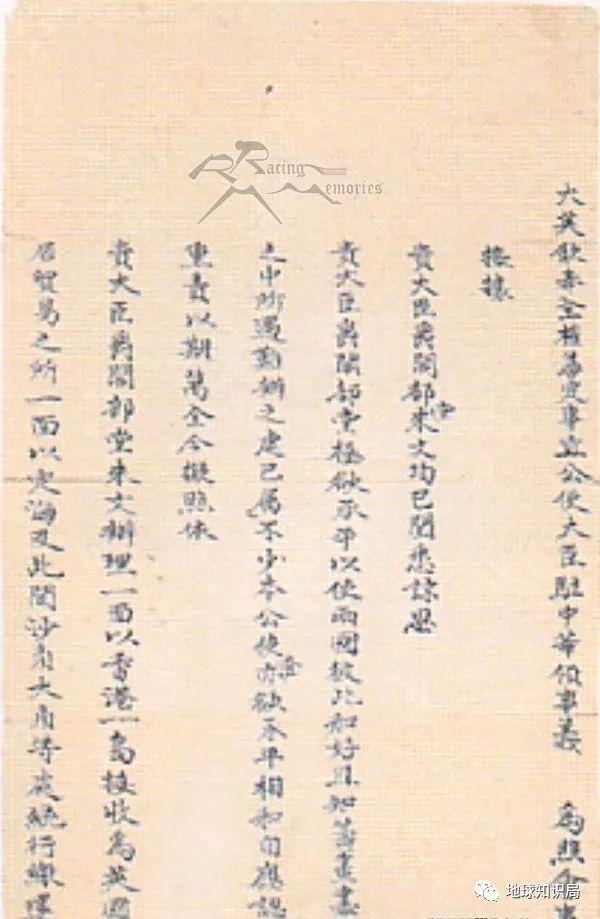 大英欽奉全權善定事宜公使大臣駐中華領事義 為照會
接據
貴大臣爵閣部堂來文均已閱悉諒思
貴大臣爵閣部堂極欲承平以使兩國彼此和好且知籌畫
之中所遇難辦之處已屬不少本公使亦欲承平相和自應認
重責以期萬全今擬照依
貴大臣爵閣部堂來文辦理一面以香港一島接收為英國
居貿易之所一面以定海及此間沙角大角等處統行繳還
Racing
Memories
地球知识局